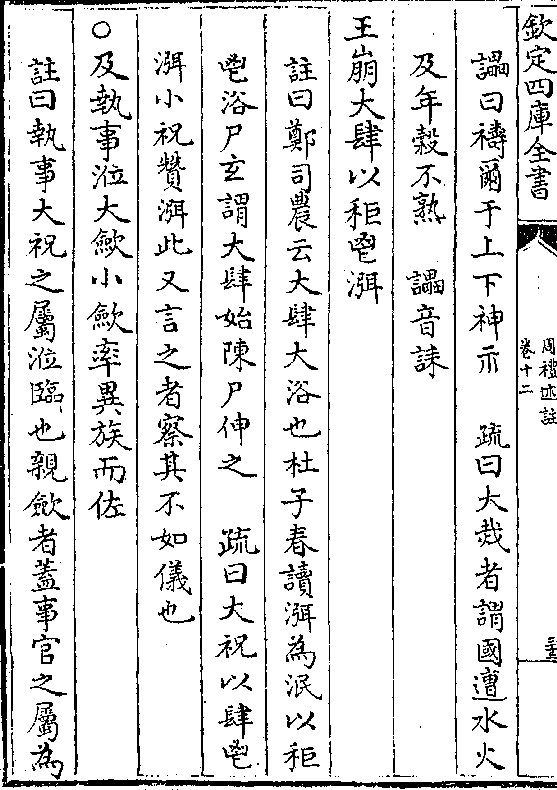 欽定四庫全書
周禮述註
卷十二
讄曰禱爾于上下神示　疏曰大烖者謂國遭水火
及年穀不熟　讄音誄
王崩大肆以秬鬯渳
註曰鄭司農云大肆大浴也杜子春讀渳為泯以秬
鬯浴尸玄謂大肆始陳尸伸之　疏曰大祝以肆鬯
渳小祝贊渳此又言之者察其不如儀也
○及執事涖大歛小歛率異族而佐
註曰執事大祝之屬涖臨也親歛者蓋事官之屬為